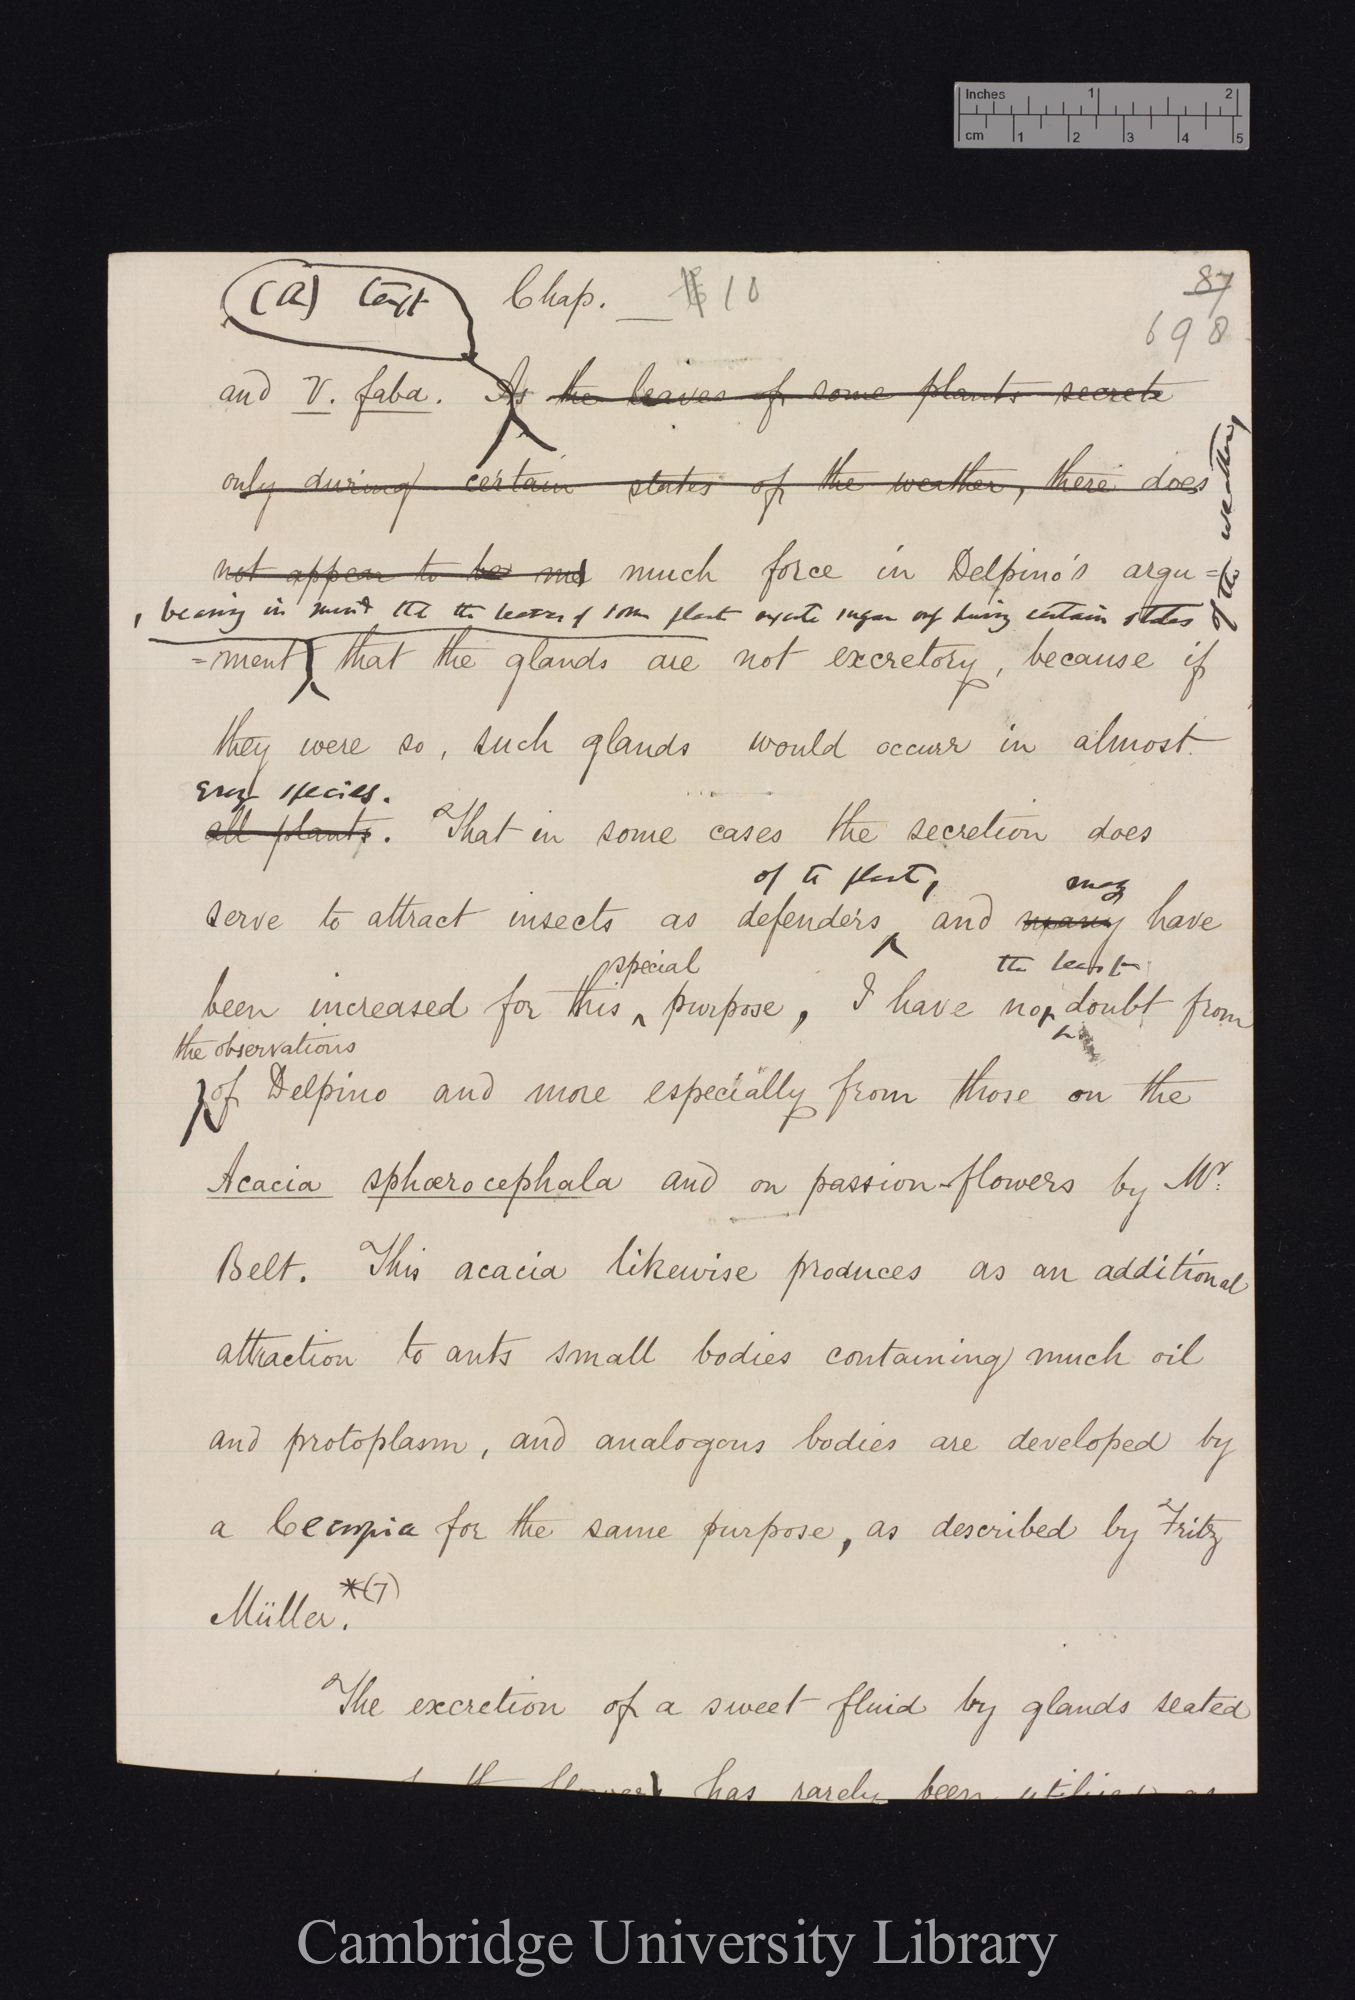 Inches 1 2
cm 1 2 3 4 5
(A) Text Chap. 10
87
698
and V. faba. As the leaves of some plants secrete
only during certain states of the weather, there does
not appear to be much force in Delpino's argu=
, bearing in mind tht the leaves of some plants excrete sugar only during certain states
of the weather,
=ment that the glands are not excretory, because if
they were so, such glands would occurr in almost
every species.
all plants. That in some cases the secretion does
of the plant, may
serve to attract insects as defenders and many have
special the least
been increased for this purpose, I have not doubt from
the observations
of Delpino and more especially from those on the
Acacia sphærocephala and on passion-flowers by Mr.
Belt. This acacia likewise produces as an additional
attraction to ants small bodies containing much oil
and protoplasm, and analogous bodies are developed by
a Cecropia for the same purpose, as described by Fritz
Müller.*(7)
The excretion of a sweet fluid by glands seated
the flower has rarely been utilised as
Cambridge University Library